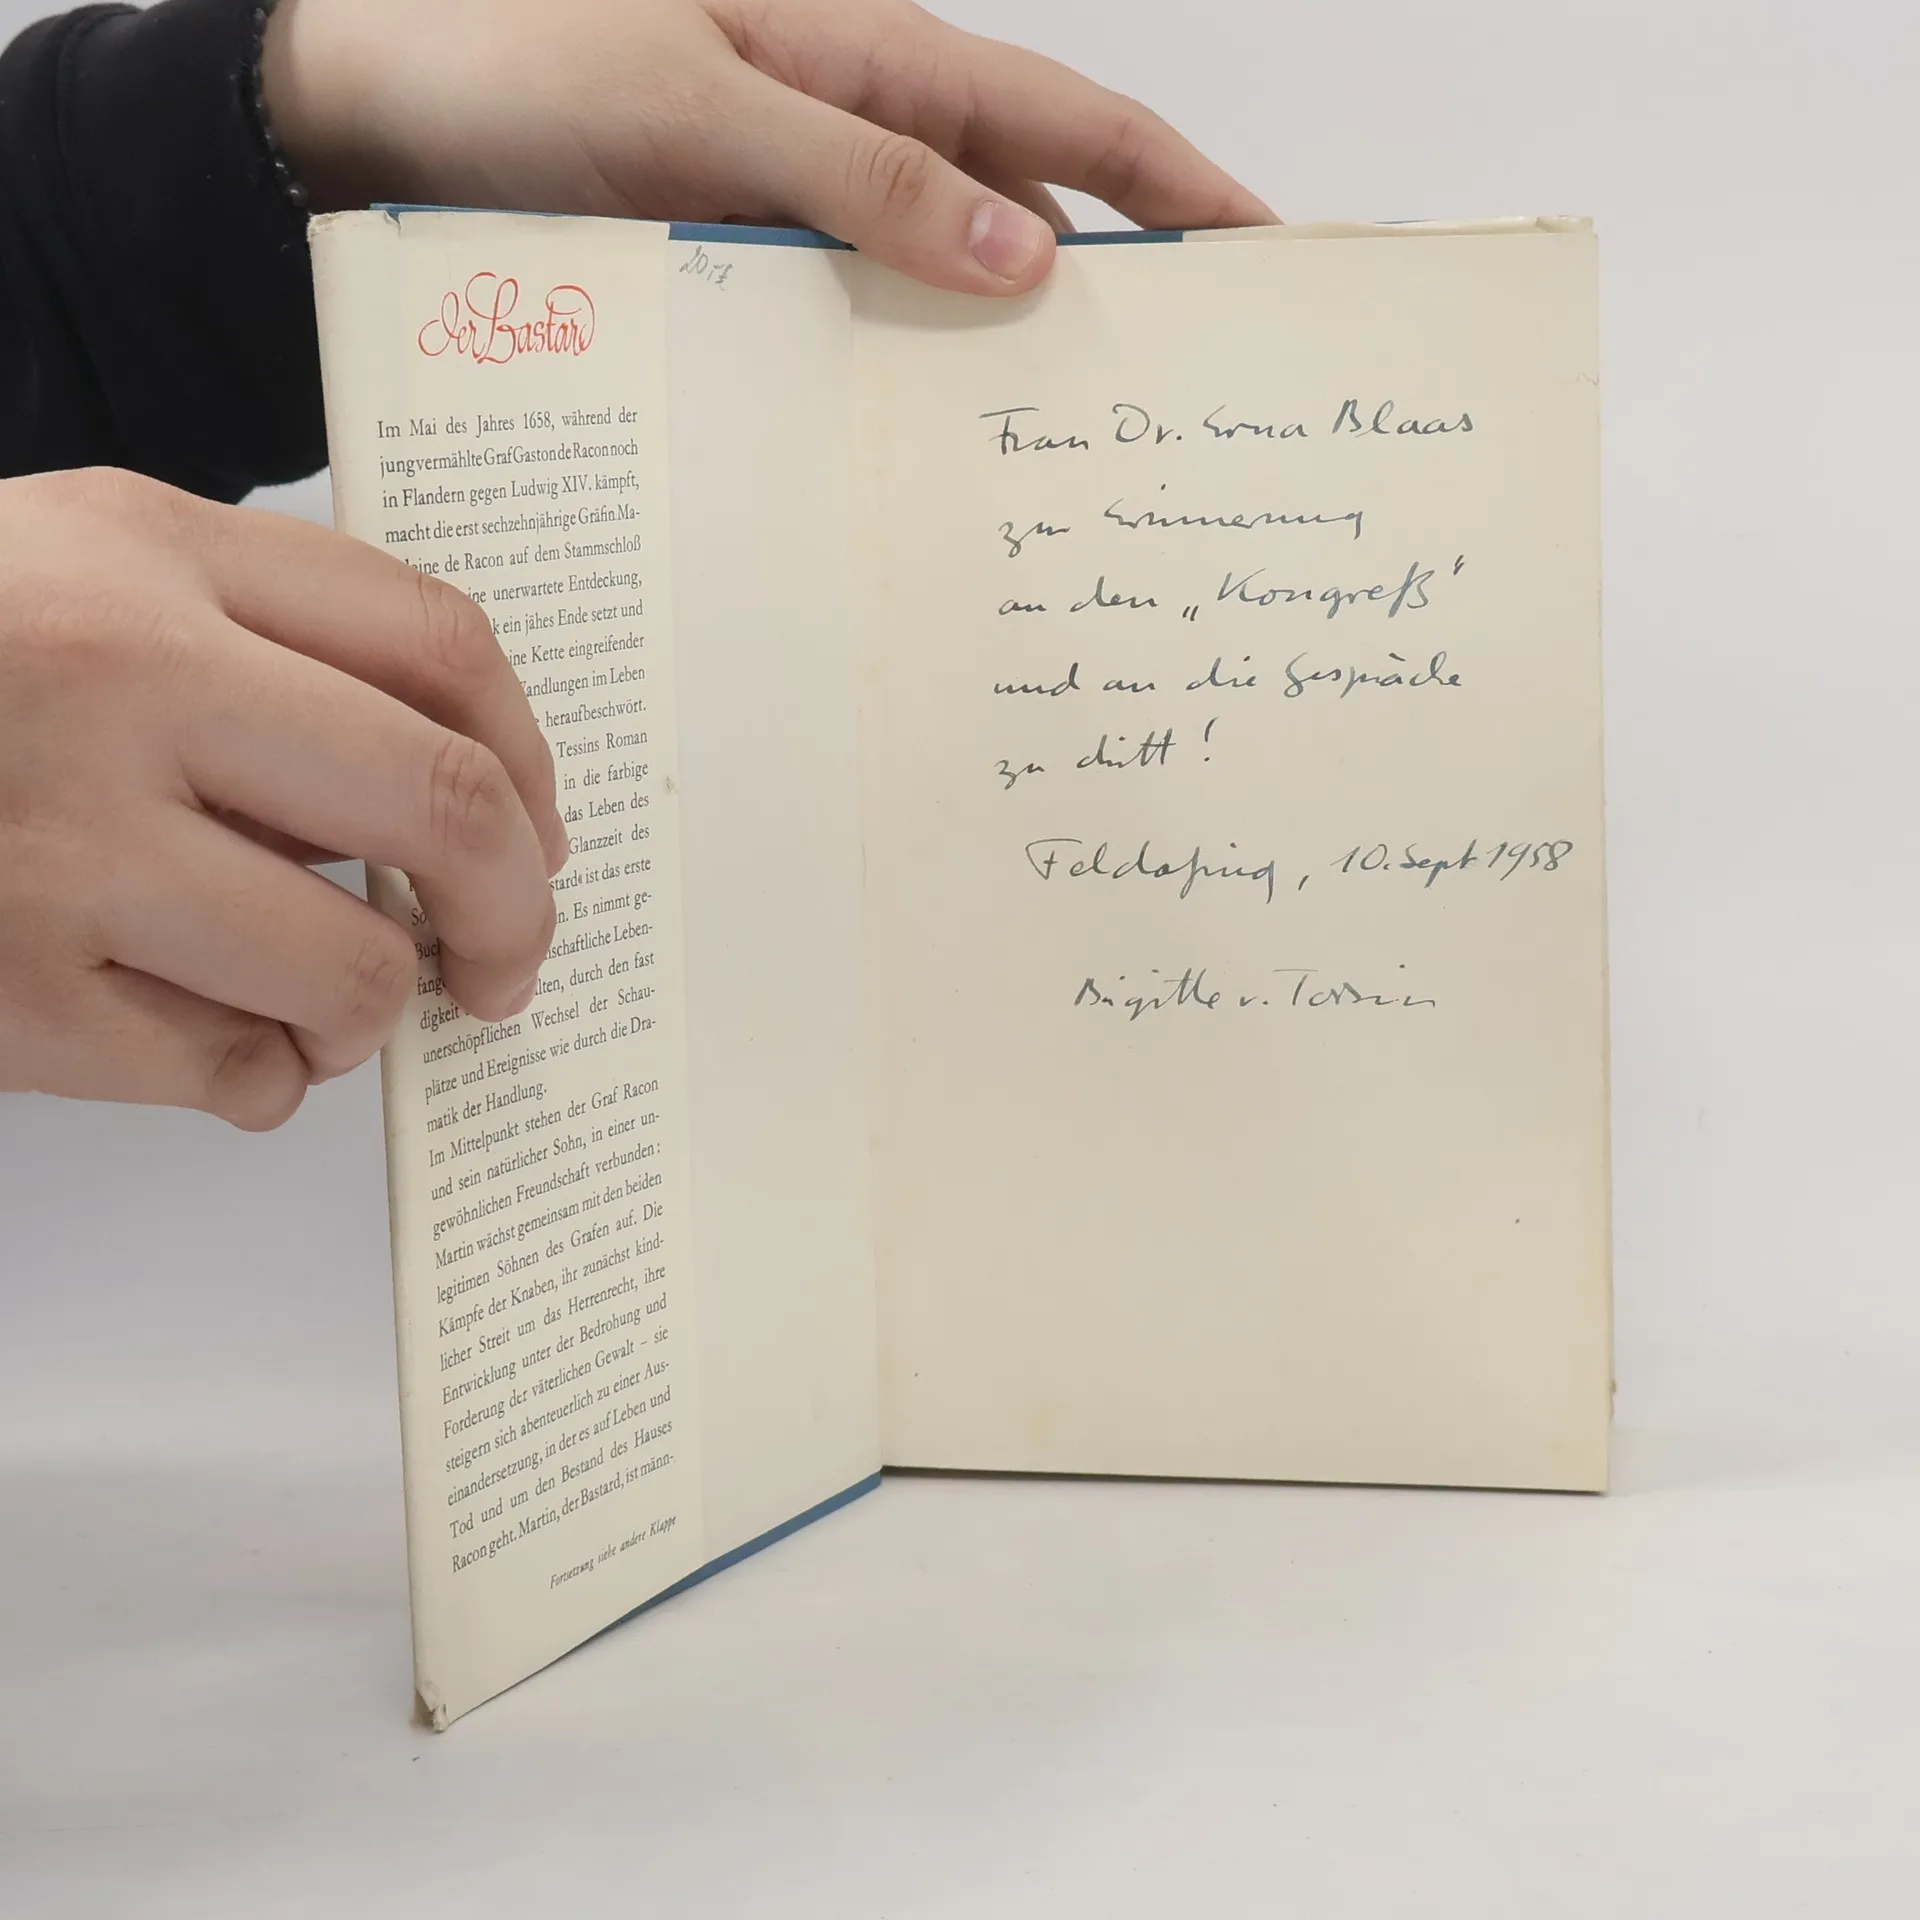 der Bastard
Im Mai des Jahres 1658, während der
jungvermählte Graf Gaston de Racon noch
in Flandern gegen Ludwig XIV. kämpft,
macht die erst sechzehnjährige Gräfin Ma-
laine de Racon auf dem Stammschloß
ine unerwartete Entdeckung,
k ein jähes Ende setzt und
ine Kette eingreifender
andlungen im Leben
heraufbeschwört.
Tessins Roman
in die farbige
das Leben des
Glanzzeit des
stard« ist das erste
So n. Es nimmt ge-
Buch schaftliche Leben-
fang lten, durch den fast
digkeit
unerschöpflichen Wechsel der Schau-
plätze und Ereignisse wie durch die Dra-
matik der Handlung.
Im Mittelpunkt stehen der Graf Racon
und sein natürlicher Sohn, in einer un-
gewöhnlichen Freundschaft verbunden:
Martin wächst gemeinsam mit den beiden
legitimen Söhnen des Grafen auf. Die
Kämpfe der Knaben, ihr zunächst kind-
licher Streit um das Herrenrecht, ihre
Entwicklung unter der Bedrohung und
Forderung der väterlichen Gewalt – sie
steigern sich abenteuerlich zu einer Aus-
einandersetzung, in der es auf Leben und
Tod und um den Bestand des Hauses
Racon geht. Martin, der Bastard, ist männ-
Fortsetzung siehe andere Klappe
Frau Dr. Erna Blaas
zur Erinnerung
an den „Kongreß“
und an die Gespräche
zu dritt!
Feldafing, 10. Sept 1958
Brigitte v. Tessin